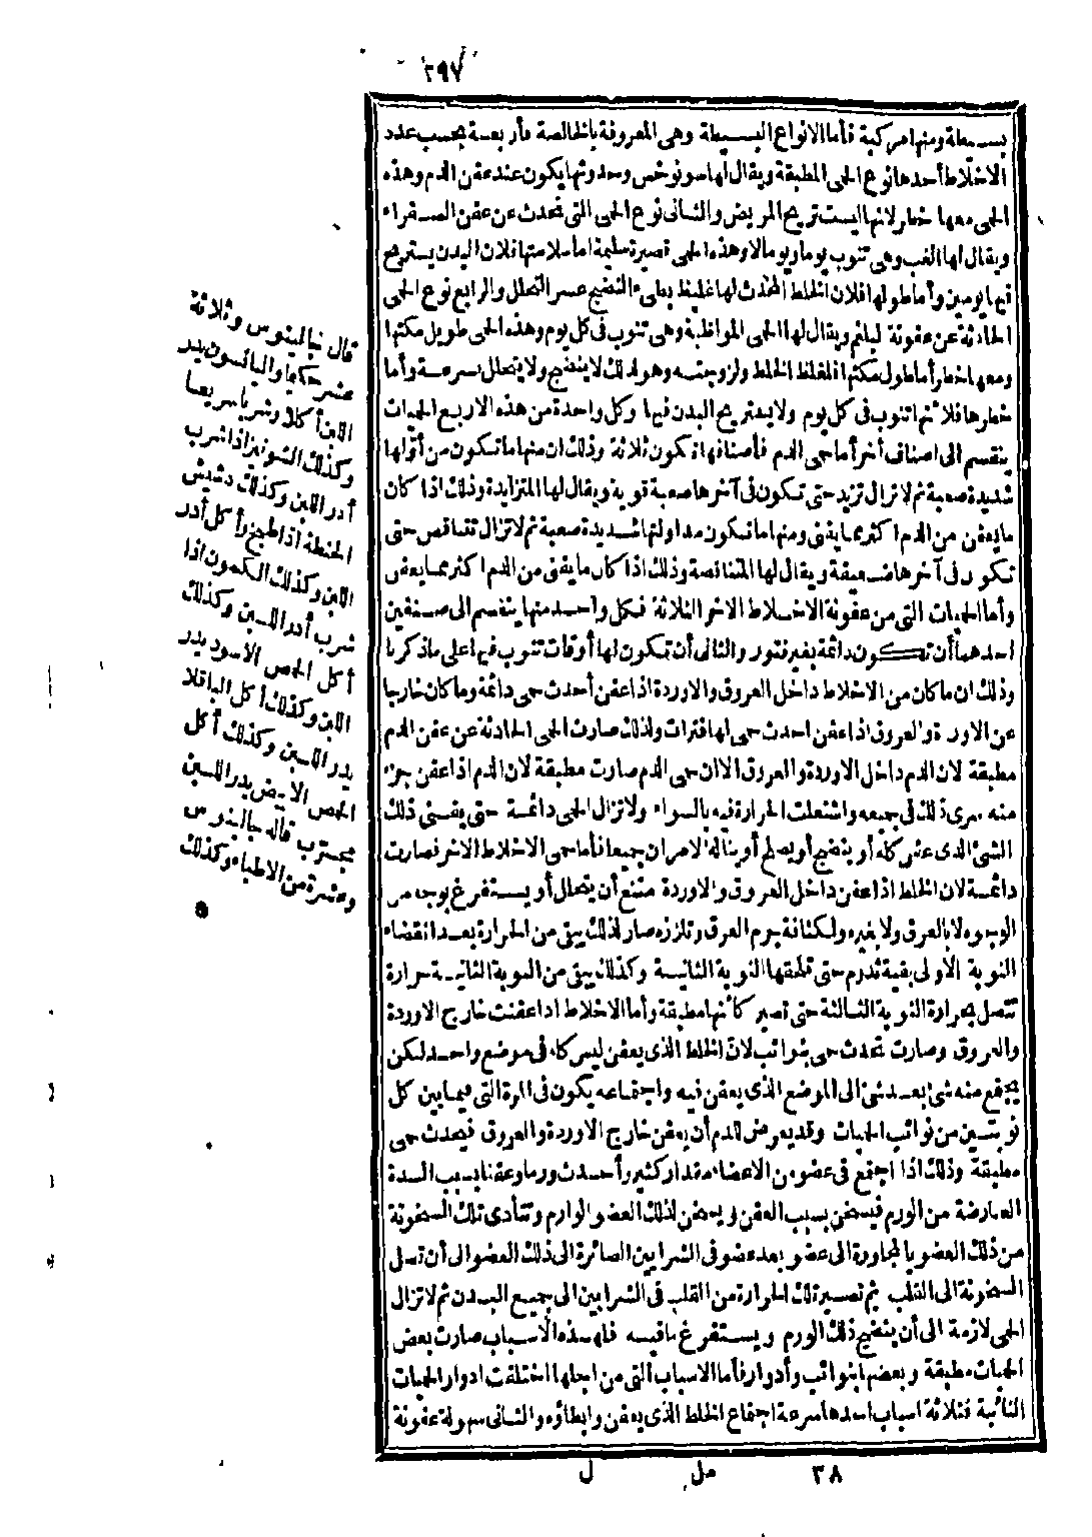 ٢٩٧
بسيطة ومنها مركبة فأما الانواع البسيطة وهى المعروفة بالخالصة فأربعة بحسب عدد
الاخلاط أحدها نوع الحمى المطبقة ويقال لها سونوخس وحدوثها يكون عند عفن الدم وهذه
الحمى معها خطر لانها ليست تريح المريض والثانى نوع الحمى التى تحدث عن عفن الصفراء
ويقال لها الغب وهى تنوب يوما ويوما لا وهذه الحمى قصيرة سليمة اما سلامتها فلان البدن يستريح
فيها يومين وأما طولها فلان الخلط المحدث لها غليظ بطىء النضج عسر التحلل والرابع نوع الحمى
الحادثة عن عفونة البلغم ويقال لها الحمى المواظبة وهى تنوب فى كل يوم وهذه الحمى طويل مكثها
ومعها خطر أما طول مكثها فلغلظ الخلط ولزوجته وهو لذلك لا ينضج ولا يتحلل بسرعة وأما
خطرها فلانها تنوب فى كل يوم ولا يستريح البدن فيها وكل واحدة من هذه الاربع الحميات
ينقسم الى اصناف أخر أما حمى الدم فأصنافها تكون ثلاثة وذلك ان منها ما تكون من أولها
شديدة صعبة ثم لا تزال تزيد حتى تكون فى آخرها صعبة قوية ويقال لها المتزايدة وذلك اذا كان
ما يعفن من الدم اكثر مما يفنى ومنها ما تكون مداولتها شديدة صعبة ثم لا تزال تتناقص حتى
تكون فى آخرها ضعيفة ويقال لها المتناقصة وذلك اذا كان ما يفنى من الدم اكثر مما يعفن
وأما الحميات التى من عفونة الاخلاط الاخر الثلاثة فكل واحد منها ينقسم الى صنفين
احدهما أن تكون دائمة بغير فتور والثانى أن تكون لها أوقات تنوب فيها على ما ذكرنا
وذلك ان ما كان من الاخلاط داخل العروق والاوردة اذا عفن أحدث حمى دائمة وما كان خارجا
عن الاوردة والعروق اذا عفن احدث حمى لها فترات ولذلك صارت الحمى الحادثة عن عفن الدم
مطبقة لان الدم داخل الاوردة والعروق الا ان حمى الدم صارت مطبقة لان الدم اذا عفن جزء
منه سرى ذلك فى جميعه واشتعلت الحرارة فيه بالسواء ولا تزال الحمى دائمة حتى يفنى ذلك
الشئ الذى عفن كله أو ينضج أو يصلح أو يناله الامران جميعا فأما حمى الاخلاط الاخر فصارت
دائمة لان الخلط اذا عفن داخل العروق والاوردة متنع أن يتحلل أو يستفرغ بوجه من
الوجوه لا بالعرق ولا بغيره ولكثافة جرم العرق وتلززه صار لذلك يبقى من الحرارة بعد انقضاء
النوبة الأولى بقية تدوم حتى تلحقها النوبة الثانية وكذلك يبقى من النوبة الثانية حرارة
تتصل بحرارة النوبة الثالثة حتى تصير كأنها مطبقة وأما الاخلاط اذا عفنت خارج الاوردة
والعروق وصارت تحدث حمى بنوائب لان الخلط الذى يعفن ليس كله فى موضع واحد لكن
يجتمع منه شئ بعد شئ الى الموضع الذى يعفن فيه واجتماعه يكون فى المرة التى فيما بين كل
نوبتين من نوائب الحميات وقد يعرض للدم أن يعفن خارج الاوردة والعروق فيحدث حمى
مطبقة وذلك اذا اجتمع فى عضو من الاعضاء مقدار كثير وأحدث ورما وعفنا بسبب السدة
العارضة من الورم فيسخن بسبب العفن ويسخن لذلك العضو الوارم وتتأدى تلك السخونة
من ذلك العضو بالمجاورة الى عضو بعد عضو فى الشرايين الصائرة الى ذلك العضو الى أن تصل
السخونة الى القلب ثم تصير تلك الحرارة من القلب فى الشرايين الى جميع البدن ثم لا تزال
الحمى لازمة الى أن ينضج ذلك الورم ويستفرغ ما فيه فلهذه الاسباب صارت بعض
الحميات مطبقة وبعضها بنوائب وأدوار فأما الاسباب التى من اجلها اختلفت ادوار الحميات
النائبة فثلاثة اسباب احدها سرعة اجتماع الخلط الذى يعفن وابطاؤه والثانى سهولة عفونة
قال جالينوس وثلاثة
عشر حكيما والياسون يدر
اللبن أكلا وشربا سريعا
وكذلك الشونيز اذا شرب
أدر اللبن وكذلك دشيش
الحنطة اذا طبخ وأكل أدر
اللبن وكذلك الكمون اذا
شرب أدر اللبن وكذلك
أكل الحمص الاسود يدر
اللبن وكذلك أكل الباقلا
يدر اللبن وكذلك أكل
الحمص الابيض يدر اللبن
مجرب قاله جالينوس
وعشرة من الاطباء وكذلك
٣٨ مل ل